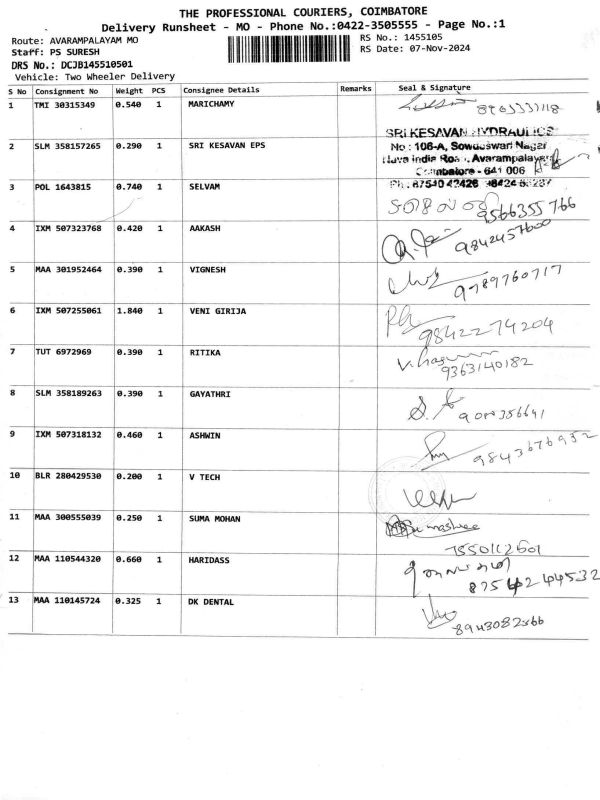 THE PROFESSIONAL COURIERS, COIMBATORE
Delivery Runsheet - MO - Phone No.:0422-3505555 - Page No.:1
Route: AVARAMPALAYAM MO
RS No.: 1455105
Staff: PS SURESH
RS Date: 07-Nov-2024
DRS No.: DCJB145510501
Vehicle: Two Wheeler Delivery
S No Consignment No Weight PCS Consignee Details Remarks Seal & Signature
1 TMI 30315349 0.540 1 MARICHAMY
SRI KESAVAN HYDRAULICS
2 SLM 358157265 0.290 1 SRI KESAVAN EPS No : 106-A, Sowdeswari Nagar
Nava India Road, Avarampalayam
Coimbatore - 641 006
3 POL 1643815 0.740 1 SELVAM
9566355766
4 IXM 507323768 0.420 1 AAKASH 9842457600
5 MAA 301952464 0.390 1 VIGNESH 9789760717
6 IXM 507255061 1.840 1 VENI GIRIJA 9842274204
7 TUT 6972969 0.390 1 RITIKA
9363140182
8 SLM 358189263 0.390 1 GAYATHRI
9 IXM 507318132 0.460 1 ASHWIN 9843676952
10 BLR 280429530 0.200 1 V TECH
11 MAA 300555039 0.250 1 SUMA MOHAN
12 MAA 110544320 0.660 1 HARIDASS
13 MAA 110145724 0.325 1 DK DENTAL